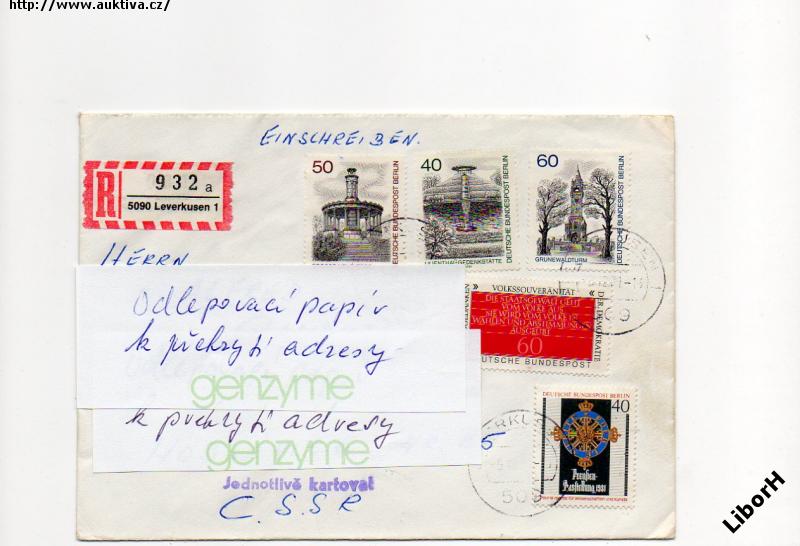 http://www.auktiva.cz/
EINSCHREIBEN.
R
932 a
5090 Leverkusen 1
50
DEUTSCHE BUNDESPOST BERLIN
40
DEUTSCHE BUNDESPOST BERLIN
LILIENTHALGEDENKSTÄTTE
60
DEUTSCHE BUNDESPOST BERLIN
GRUNEWALDTURM
HERRN
Odlepovací papír
k překrytí adresy
genzyme
k překrytí adresy
genzyme
VOLKSSOUVERÄNITÄT
DIE STAATSGEWALT GEHT
VOM VOLKE AUS.
SIE WIRD VOM VOLKE IN
WAHLEN UND ABSTIMMUNGEN
AUSGEÜBT
60
DEUTSCHE BUNDESPOST
DER DEMOKRATIE
DEUTSCHE BUNDESPOST BERLIN
40
Preußen-
Ausstellung 1981
509
5
Jednotlivě kartovat
C.S.S.R
LiborH